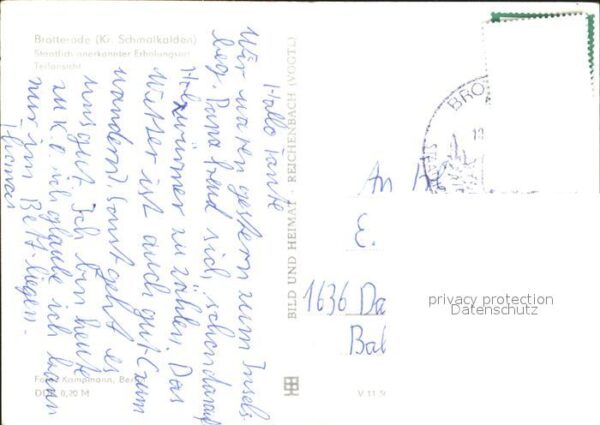 Brotterode (Kr. Schmalkalden)
Staatlich anerkannter Erholungsort
Teilansicht
Hallo Tante
Wir waren gestern zum Insels-
berg. Papa freud sich, schon darauf
Holzwürmer zu zählen. Das
Wetter ist auch gut (zum
wandern). Sonst geht es
uns gut. Ich bin heute
zu K.o. ich glaube ich kann
nur im Bett liegen.
Thomas
Foto: Kampmann, Ber
0,20 M
BILD UND HEIMAT REICHENBACH (VOGTL)
V 11
BRO
An
E.
1636 Da
privacy protection
Datenschutz